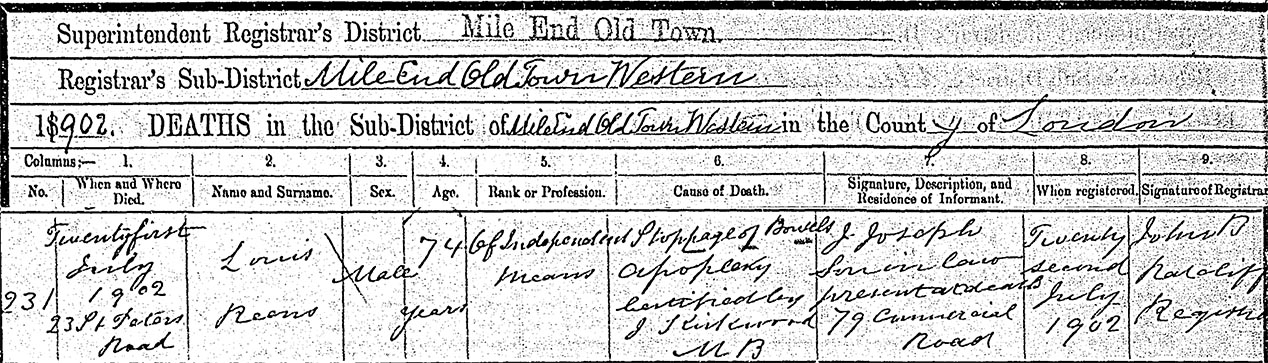 Superintendent Registrar's District Mile End Old Town.
Registrar's Sub-District Mile End Old Town Western
1902. DEATHS in the Sub-District of Mile End Old Town Western in the County of London
Columns:— 1. 2. 3. 4. 5. 6. 7. 8. 9.
No. When and Where Died. Name and Surname. Sex. Age. Rank or Profession. Cause of Death. Signature, Description, and Residence of Informant. When registered. Signature of Registrar
231
Twenty first
July
1902
23 St Peters
Road
Louis
Reens
Male
74
years
Of Independent
means
Stoppage of Bowels
Apoplexy
Certified by
J Kirkwood
M B
J. Joseph
Son in law
present at death
79 Commercial
Road
Twenty
second
July
1902
John B
Ratcliff
Registrar